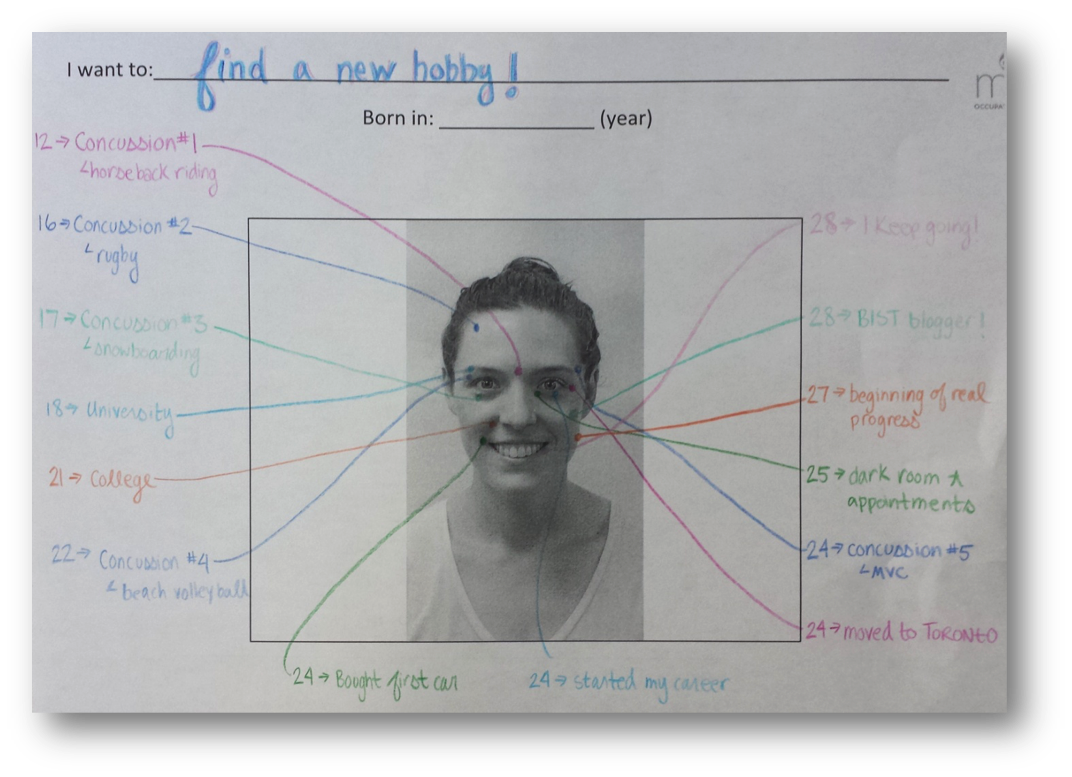 I want to: find a new hobby!
Born in: ____________ (year)
12→ Concussion #1
↳horseback riding
16→ Concussion #2
↳rugby
17→ Concussion #3
↳snowboarding
18→ University
21→ College
22→ Concussion #4
↳ beach volleyball
24→ Bought first car
24→ started my career
24→ moved to TORONTO
24→ concussion #5
↳MVC
25→ dark room +
appointments
27→ beginning of real
progress
28→ BIST blogger!
28→ I Keep going!